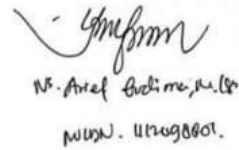 Ns. Arief Budiman, M.Kes
NIDN. 1112098801.